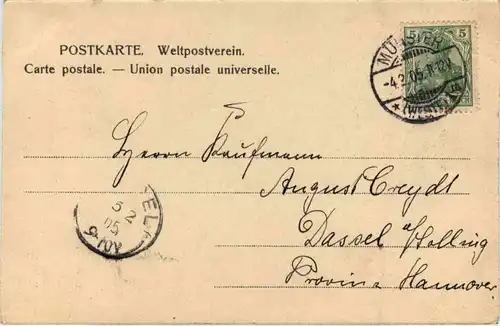 POSTKARTE. Weltpostverein.
Carte postale. — Union postale universelle.
5 5
MÜNSTER
-4.2.05.
* (WESTF.)
Herrn Kaufmann
August Creydt
Dassel a/Solling
Provinz Hannover.
5 2
05